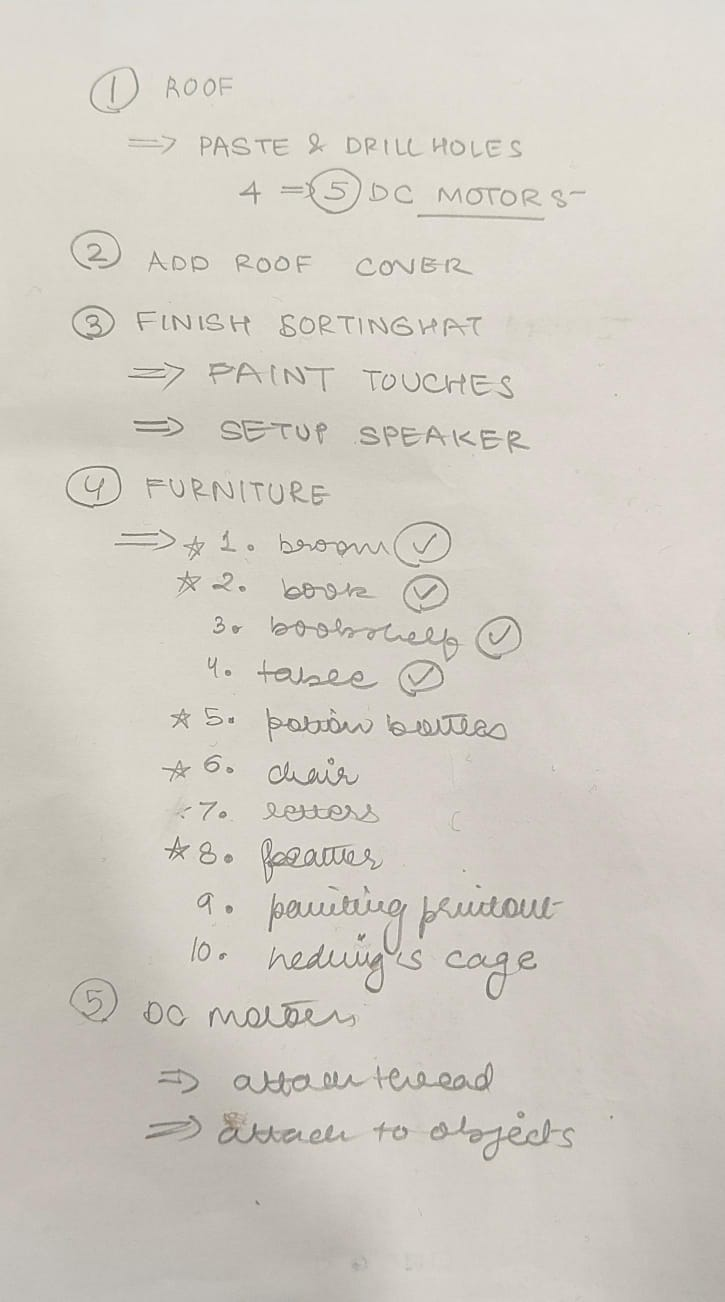 ① ROOF
⇒ PASTE & DRILL HOLES
4 ⇒ ⑤ DC MOTORS
② ADD ROOF COVER
③ FINISH SORTINGHAT
⇒ PAINT TOUCHES
⇒ SETUP SPEAKER
④ FURNITURE
⇒ ☆ 1. broom ✓
☆ 2. book ✓
3. bookshelf ✓
4. table ✓
☆ 5. potion bottles
☆ 6. chair
7. letters
☆ 8.
9. painting printout
10. hedwig's cage
⑤ DC motors
⇒ attach thread
⇒ attach to objects